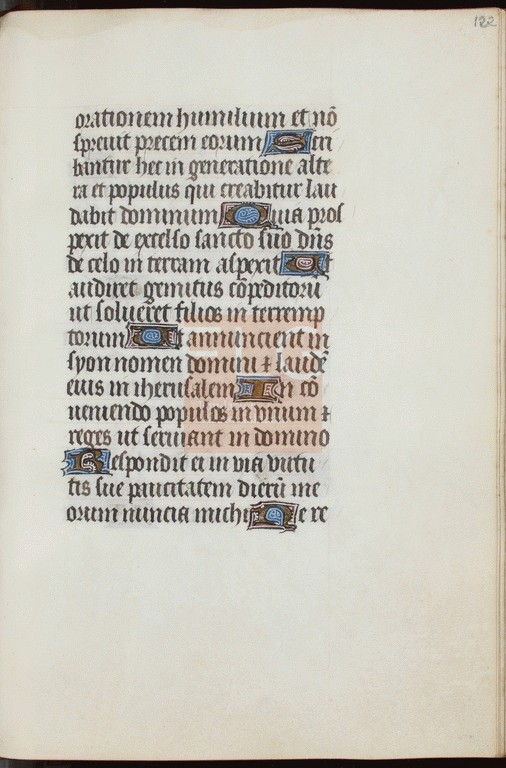 122
orationem humilium et nõ
spreuit precem eorum Scri
bantur hec in generatione alte
ra et populus qui creabitur lau
dabit dominum Quia pros
pexit de excelso sancto suo dñs
de celo in terram aspexit Ut
audiret gemitus cõpeditorũ
ut solueret filios in teremp
torum Ut annuncient in
syon nomen domini ⁊ laudẽ
eius in iherusalem In cõ
ueniendo populos in vnum ⁊
reges ut seruiant in domino
Respondit ei in via virtu
tis sue paucitatem dierũ me
orum nuncia michi Ne re